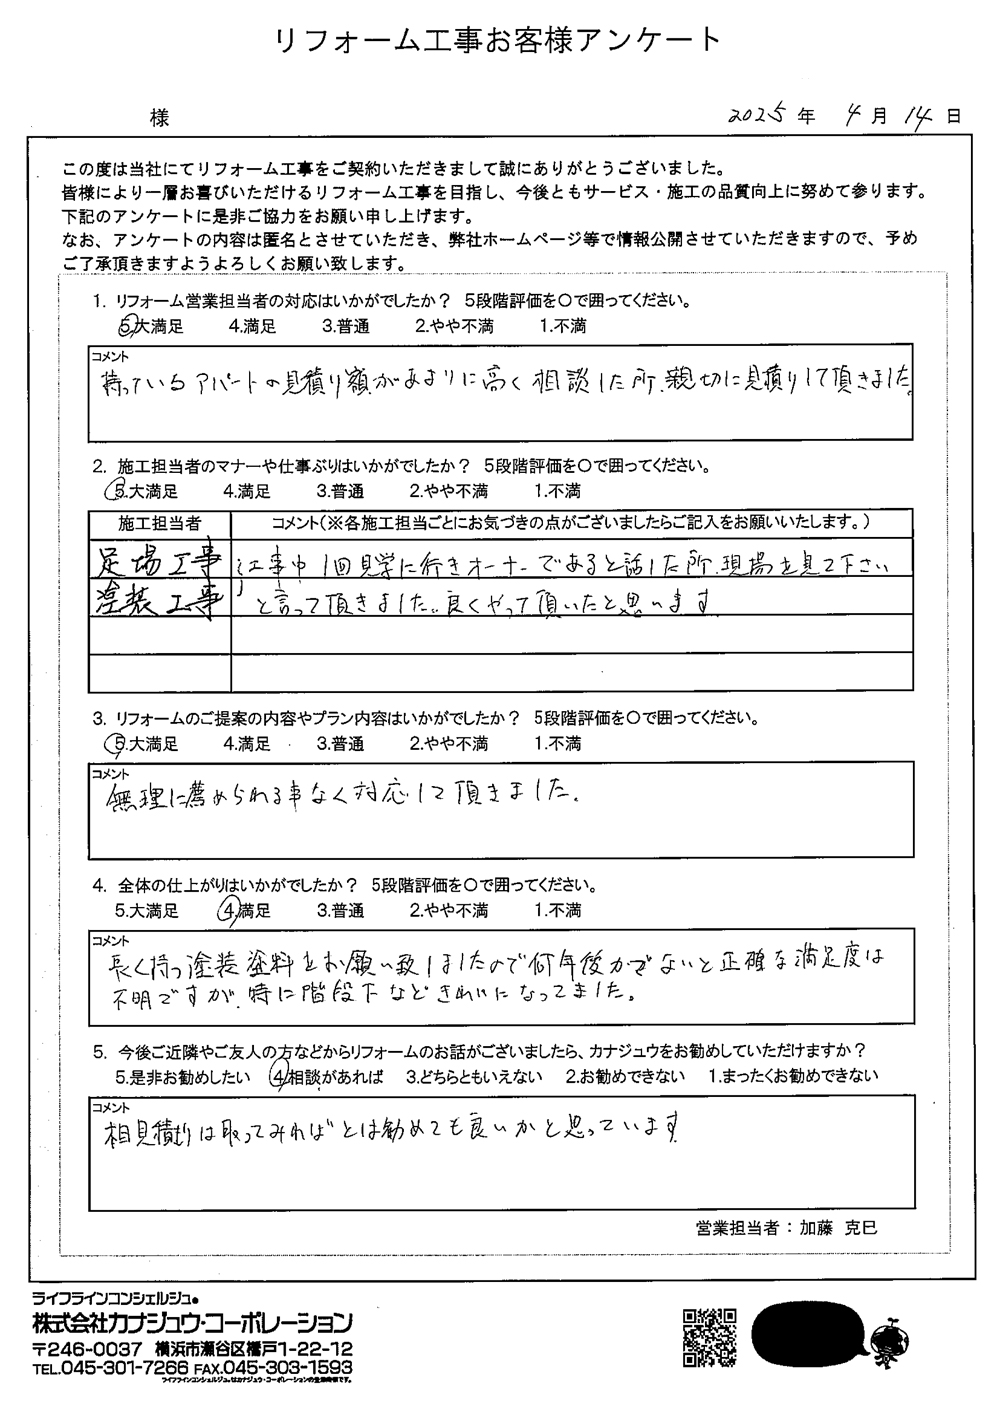 リフォーム工事お客様アンケート
様
2025 年 4 月 14 日
この度は当社にてリフォーム工事をご契約いただきまして誠にありがとうございました。
皆様により一層お喜びいただけるリフォーム工事を目指し、今後ともサービス・施工の品質向上に努めて参ります。
下記のアンケートに是非ご協力をお願い申し上げます。
なお、アンケートの内容は匿名とさせていただき、弊社ホームページ等で情報公開させていただきますので、予め
ご了承頂きますようよろしくお願い致します。
1. リフォーム営業担当者の対応はいかがでしたか? 5段階評価を○で囲ってください。
5.大満足 4.満足 3.普通 2.やや不満 1.不満
コメント
持っているアパートの見積り額があまりに高く相談した所、親切に見積りして頂きました。
2. 施工担当者のマナーや仕事ぶりはいかがでしたか? 5段階評価を○で囲ってください。
5.大満足 4.満足 3.普通 2.やや不満 1.不満
施工担当者 コメント(※各施工担当ごとにお気づきの点がございましたらご記入をお願いいたします。)
足場工事 工事中1回見学に行きオーナーであると話した所、現場を見て下さい
塗装工事 と言って頂きました。良くやって頂いたと思います
3. リフォームのご提案の内容やプラン内容はいかがでしたか? 5段階評価を○で囲ってください。
5.大満足 4.満足 3.普通 2.やや不満 1.不満
コメント
無理に薦められる事なく対応して頂きました。
4. 全体の仕上がりはいかがでしたか? 5段階評価を○で囲ってください。
5.大満足 4.満足 3.普通 2.やや不満 1.不満
コメント
長く持つ塗装塗料をお願い致しましたので何年後かでないと正確な満足度は
不明ですが、特に階段下などきれいになってました。
5. 今後ご近隣やご友人の方などからリフォームのお話がございましたら、カナジュウをお勧めしていただけますか?
5.是非お勧めしたい 4.相談があれば 3.どちらともいえない 2.お勧めできない 1.まったくお勧めできない
コメント
相見積りは取ってみればとは勧めても良いかと思っています
営業担当者:加藤 克巳
ライフラインコンシェルジュ。
株式会社カナジュウ・コーポレーション
〒246-0037 横浜市瀬谷区橋戸1-22-12
TEL.045-301-7266 FAX.045-303-1593
ライフラインコンシェルジュ。はカナジュウ・コーポレーションの登録商標です。